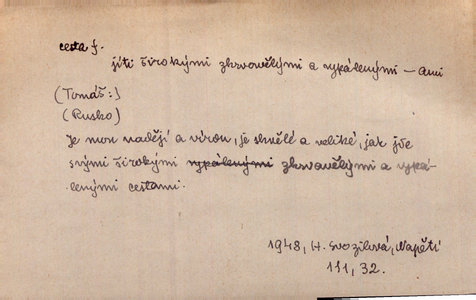 cesta f.
jíti širokými zkrvavělými a vypálenými — Ami
(Tomáš:)
(Rusko)
Je mou nadějí a vírou, je smělé a veliké, jak jde
svými širokými vypálenými zkrvavělými a vypá-
lenými cestami.
1948, H. Svozilová, Napětí
111, 32.